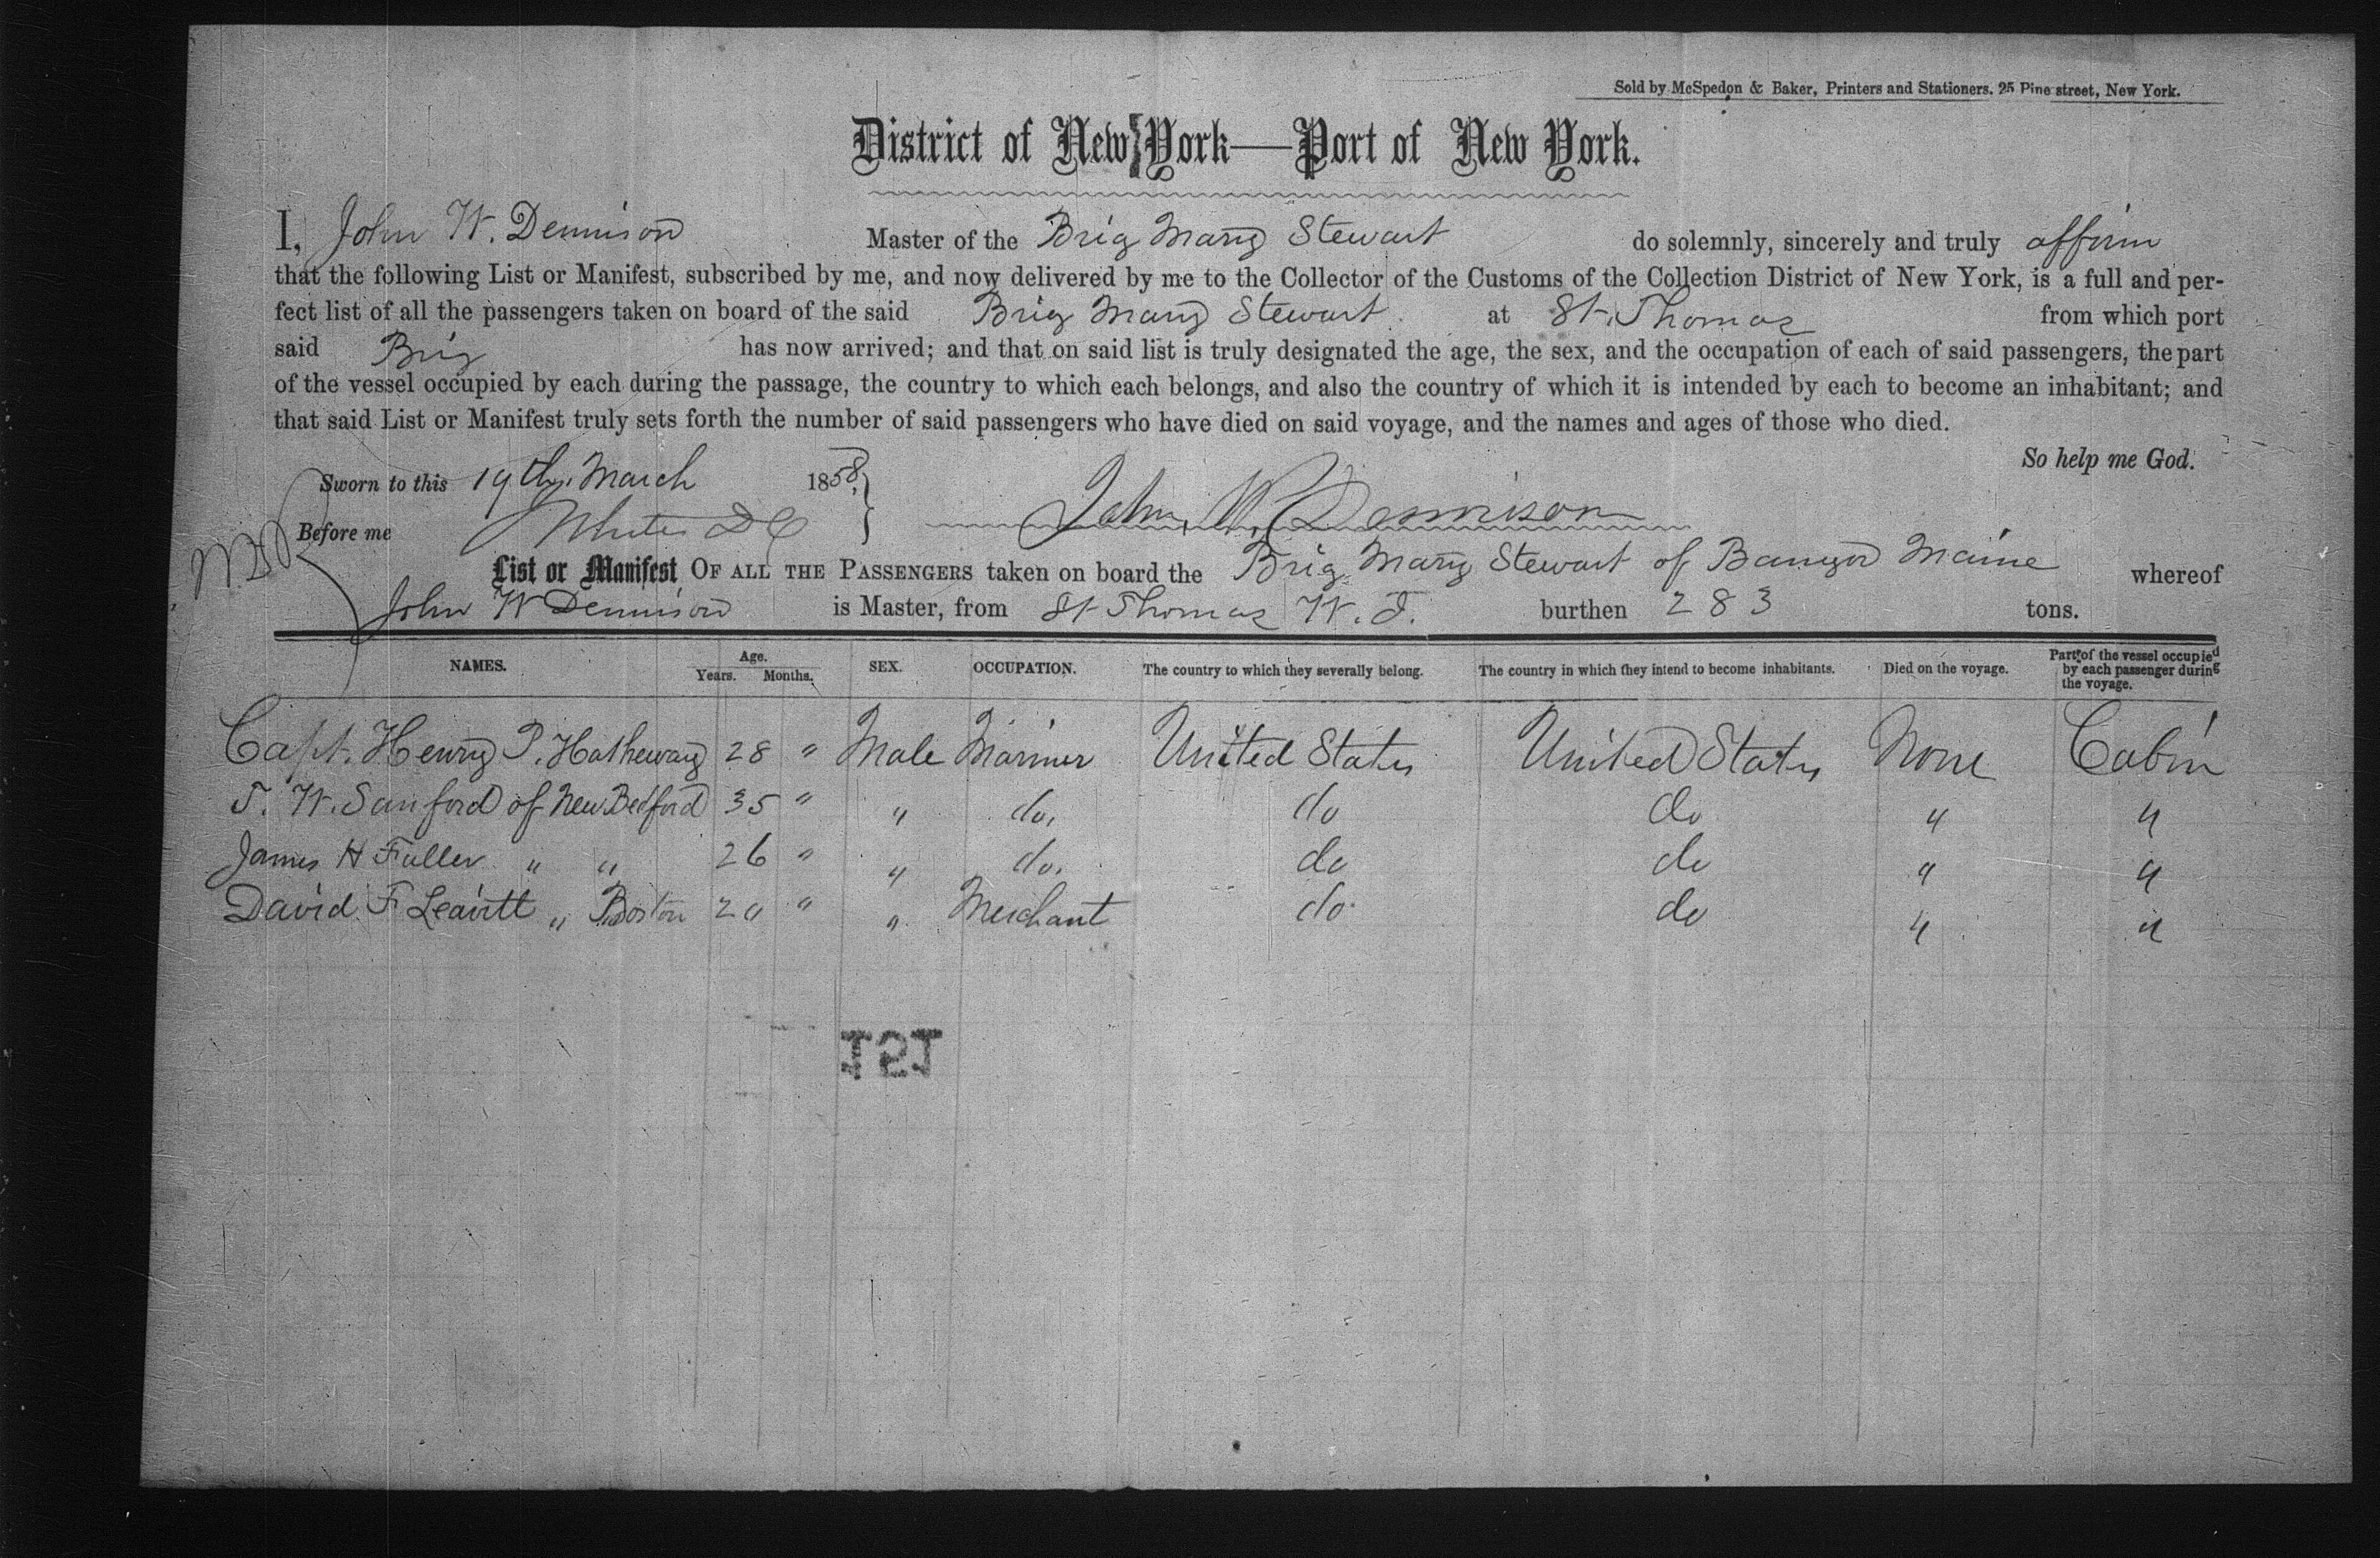 Sold by McSpedon & Baker, Printers and Stationers. 25 Pine street, New York.
District of New York—Port of New York.
I, John W. Dennison Master of the Brig Mary Stewart do solemnly, sincerely and truly affirm
that the following List or Manifest, subscribed by me, and now delivered by me to the Collector of the Customs of the Collection District of New York, is a full and per-
fect list of all the passengers taken on board of the said Brig Mary Stewart at St. Thomas from which port
said Brig has now arrived; and that on said list is truly designated the age, the sex, and the occupation of each of said passengers, the part
of the vessel occupied by each during the passage, the country to which each belongs, and also the country of which it is intended by each to become an inhabitant; and
that said List or Manifest truly sets forth the number of said passengers who have died on said voyage, and the names and ages of those who died.
So help me God.
Sworn to this 19th. March 1858.
Before me John W. Dennison
List or Manifest OF ALL THE PASSENGERS taken on board the Brig Mary Stewart of Bangor Maine whereof
John W Dennison is Master, from St Thomas W. I. burthen 283 tons.
NAMES. Age. Years. Months. SEX. OCCUPATION. The country to which they severally belong. The country in which they intend to become inhabitants. Died on the voyage. Part of the vessel occupied by each passenger during the voyage.
Capt. Henry P. Hatheway 28 " Male Mariner United States United States None Cabin
T. W. Sanford of New Bedford 35 " " do. do do " "
James H Fuller " " 26 " " do. do do " "
David F Leavitt " Boston " " Merchant do do " "
151